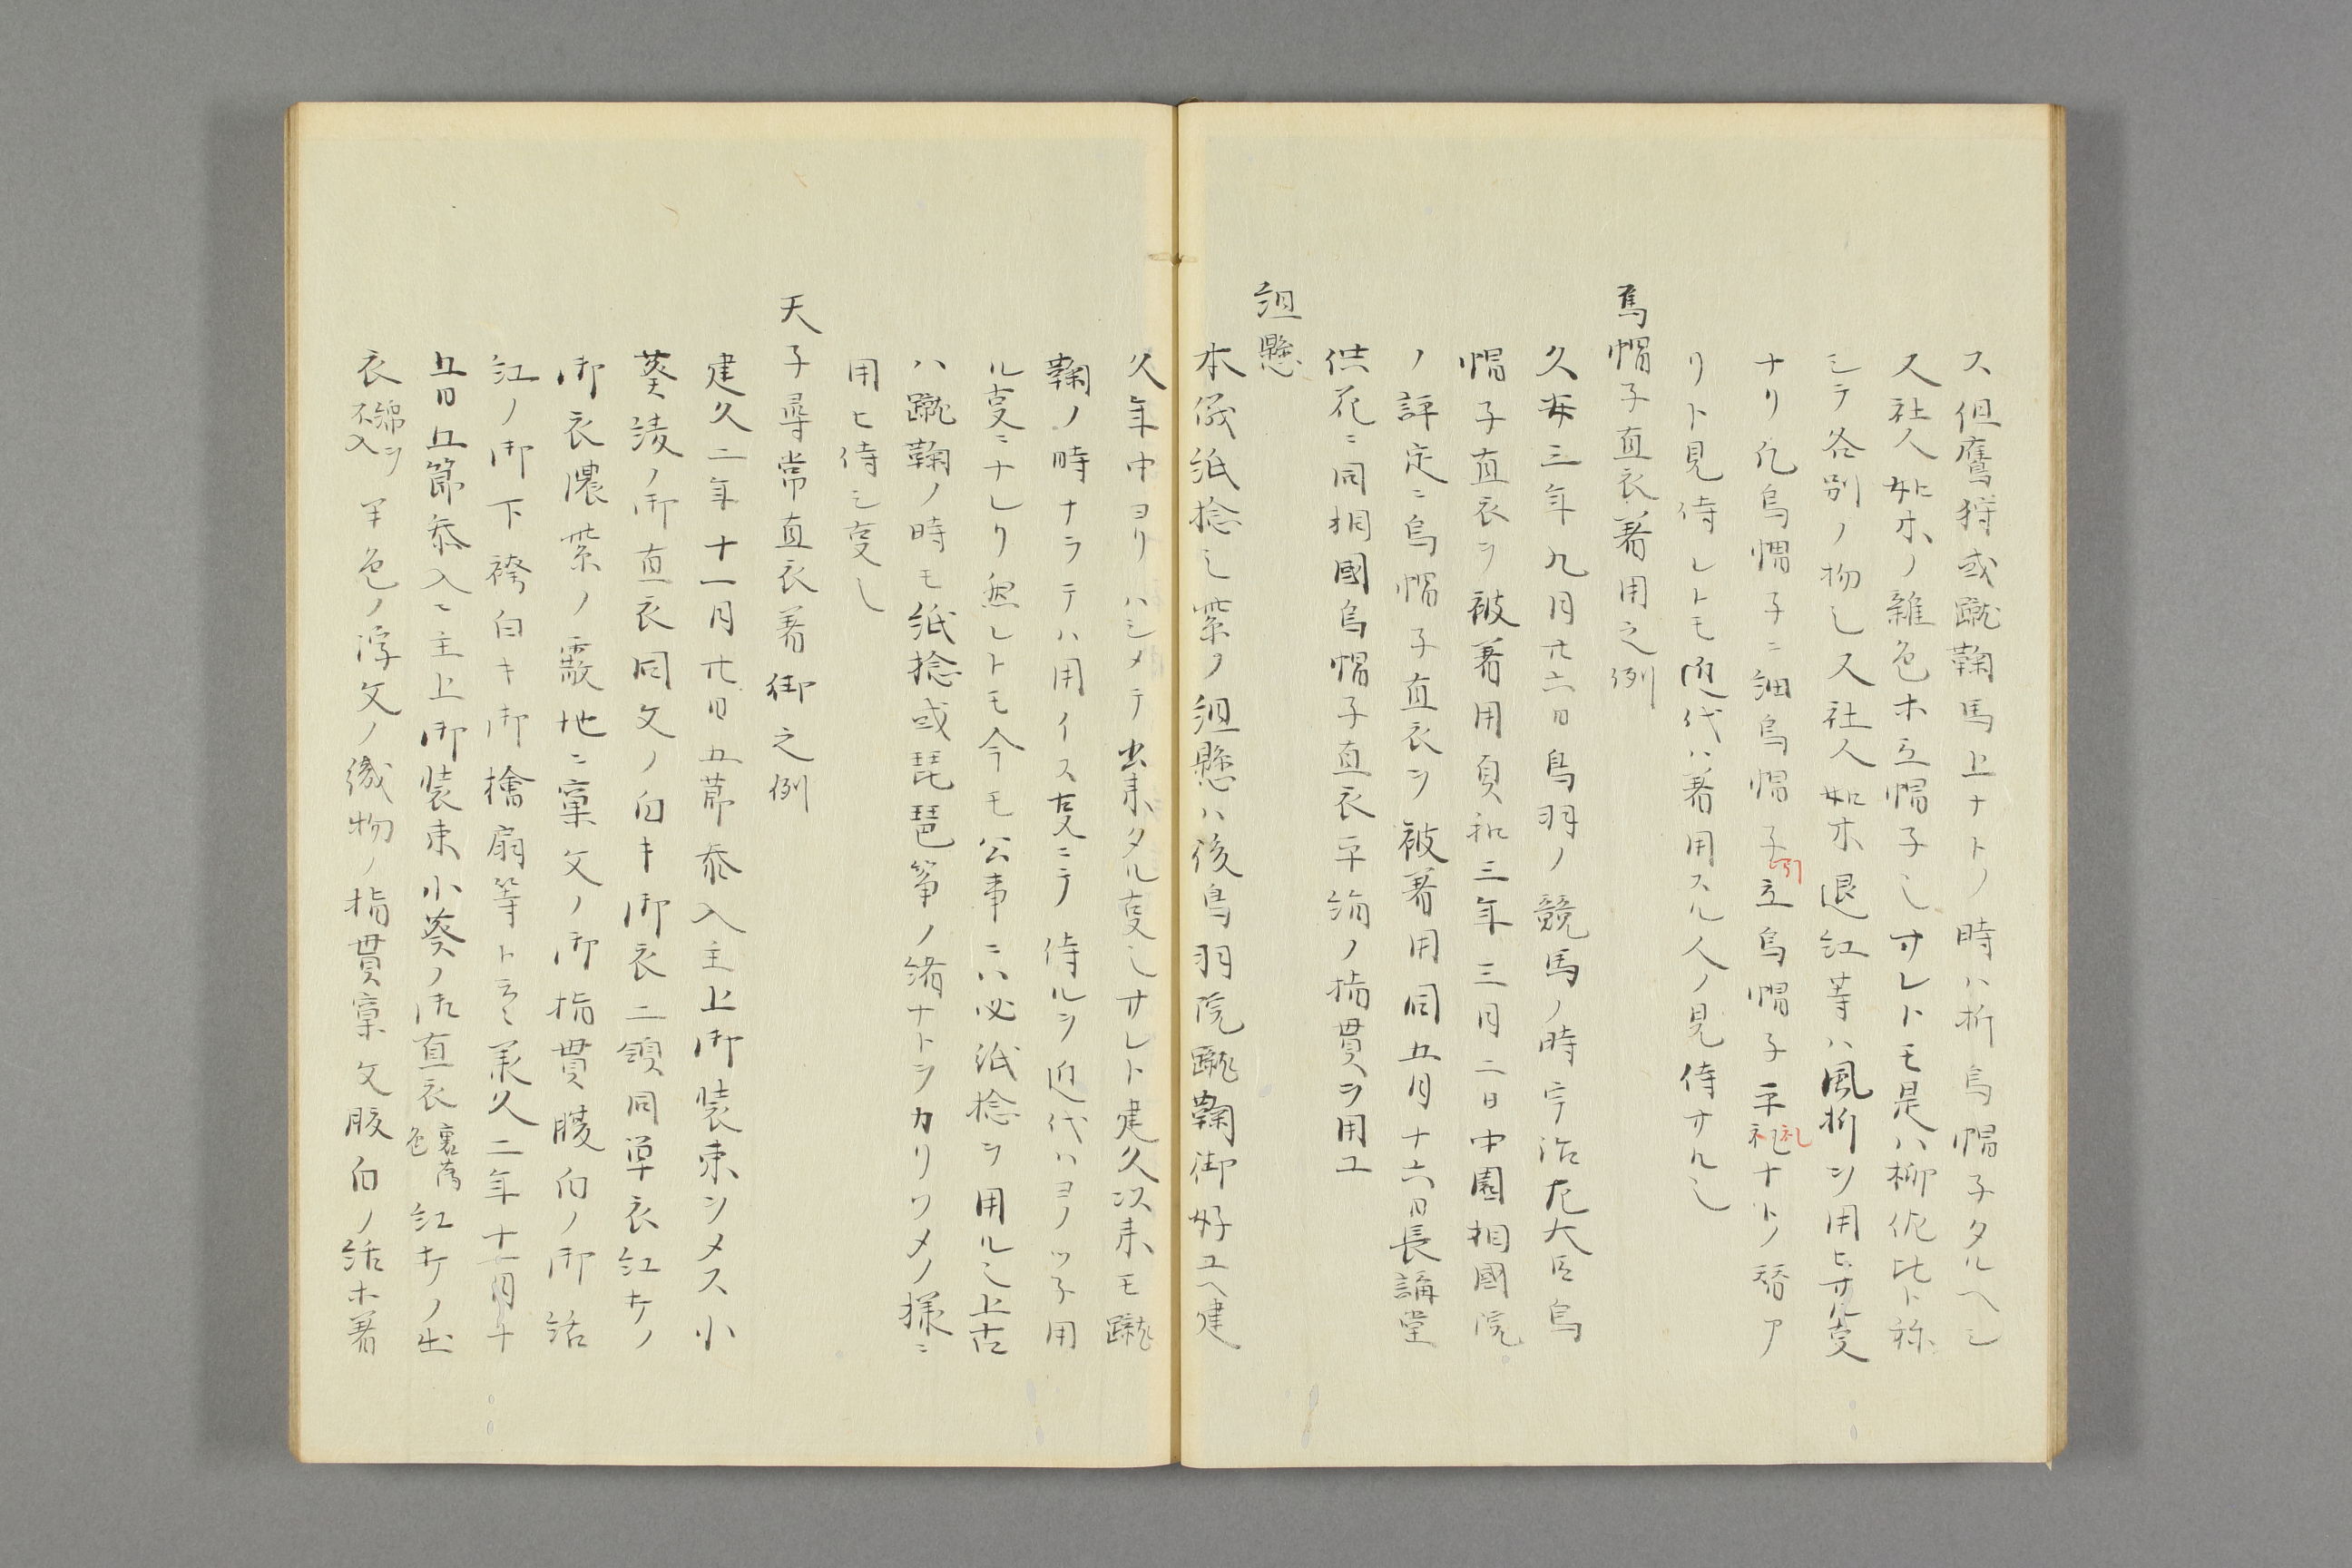 ス但鷹狩或蹴鞠馬上ナトノ時ハ折烏帽子タルヘシ
又社人如木ノ雑色ホ立帽子也サレトモ是ハ柳佗比ト称
シテ各別ノ物也又社人如木退紅等ハ風折ヲ用ヒサル叓
ナリ凡烏帽子ニ細烏帽子引立烏帽子平礼ナトノ替ア
リト見侍レトモ近代ハ著用スル人ノ見侍サル也
烏帽子直衣著用之例
久安三年九月廿六日鳥羽ノ競馬ノ時宇治左大臣烏
帽子直衣ヲ被著用貞和三年三月二日中園相國院
ノ評定ニ烏帽子直衣ヲ被著用同五月十六日長講堂
供花ニ同相國烏帽子直衣平絹ノ指貫ヲ用ユ
組懸
本儀紙捻也紫ノ組懸ハ後鳥羽院蹴鞠御好ユヘ建
久年中ヨリハシメテ出来タル叓也サレト建久以来モ蹴
鞠ノ時ナラテハ用イス叓ニテ侍ルヲ近代ハヨノツ子用
ル叓ニナレリ然レトモ今モ公事ニハ必紙捻ヲ用ル也上古
ハ蹴鞠ノ時モ紙捻或琵琶箏ノ緒ナトヲカリソメノ様ニ
用ヒ侍シ叓也
天子尋常直衣著御之例
建久二年十一月廿日五節参入主上御装束ヲメス小
葵綾ノ御直衣同文ノ白キ御衣二領同単衣紅キノ
御衣濃紫ノ霰地ニ窠文ノ御指貫腹白ノ御括
紅ノ御下袴白キ御檜扇等ト云々承久二年十一月十
五日五節参入ニ主上御装束小葵ノ御直衣裏薄色紅キノ出
衣綿ヲ不入半色ノ浮文ノ織物ノ指貫窠文腹白ノ括ホ著